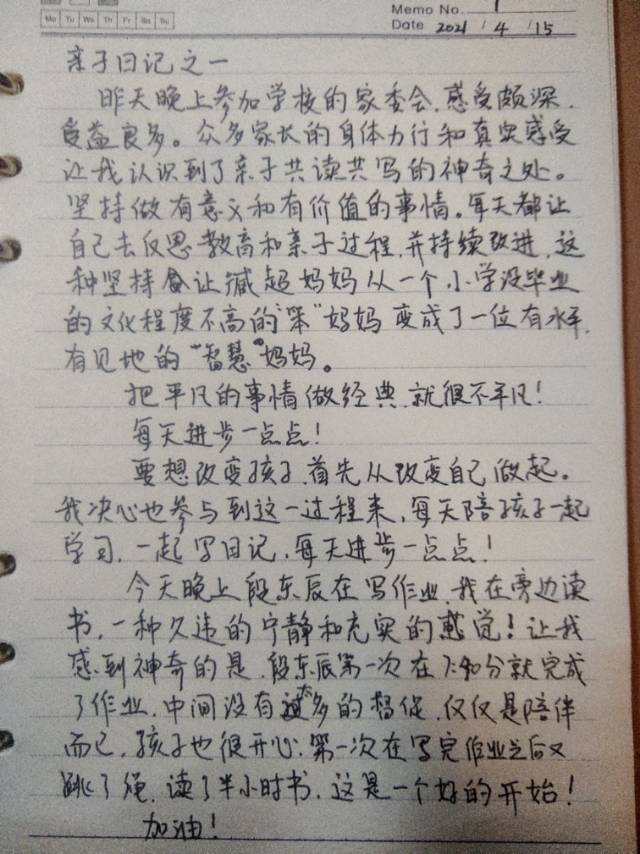 Memo No. 1
Mo Tu We Th Fr Sa Su
Date 2021 / 4 / 15
亲子日记之一
昨天晚上参加学校的家委会,感受颇深,
受益良多。众多家长的身体力行和真实感受
让我认识到了亲子共读共写的神奇之处。
坚持做有意义和有价值的事情。每天都让
自己去反思教育和亲子过程,并持续改进,这
种坚持会让臧超妈妈从一个小学没毕业
的文化程度不高的“笨”妈妈变成了一位有水平,
有见地的“智慧”妈妈。
把平凡的事情做经典,就很不平凡!
每天进步一点点!
要想改变孩子,首先从改变自己做起。
我决心也参与到这一过程来,每天陪孩子一起
学习,一起写日记,每天进步一点点!
今天晚上段东辰在写作业,我在旁边读
书,一种久违的宁静和充实的感觉!让我
感到神奇的是,段东辰第一次在7:40分就完成
了作业,中间没有过太多的督促,仅仅是陪伴
而已,孩子也很开心,第一次在写完作业之后又
跳了绳,读了半小时书,这是一个好的开始!
加油!